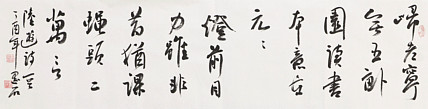 歸老寧
無五畝
園讀書
本意在
元々
燈前目
力雖非
昔猶課
蠅頭二
萬言
陸遊詩
丁酉年